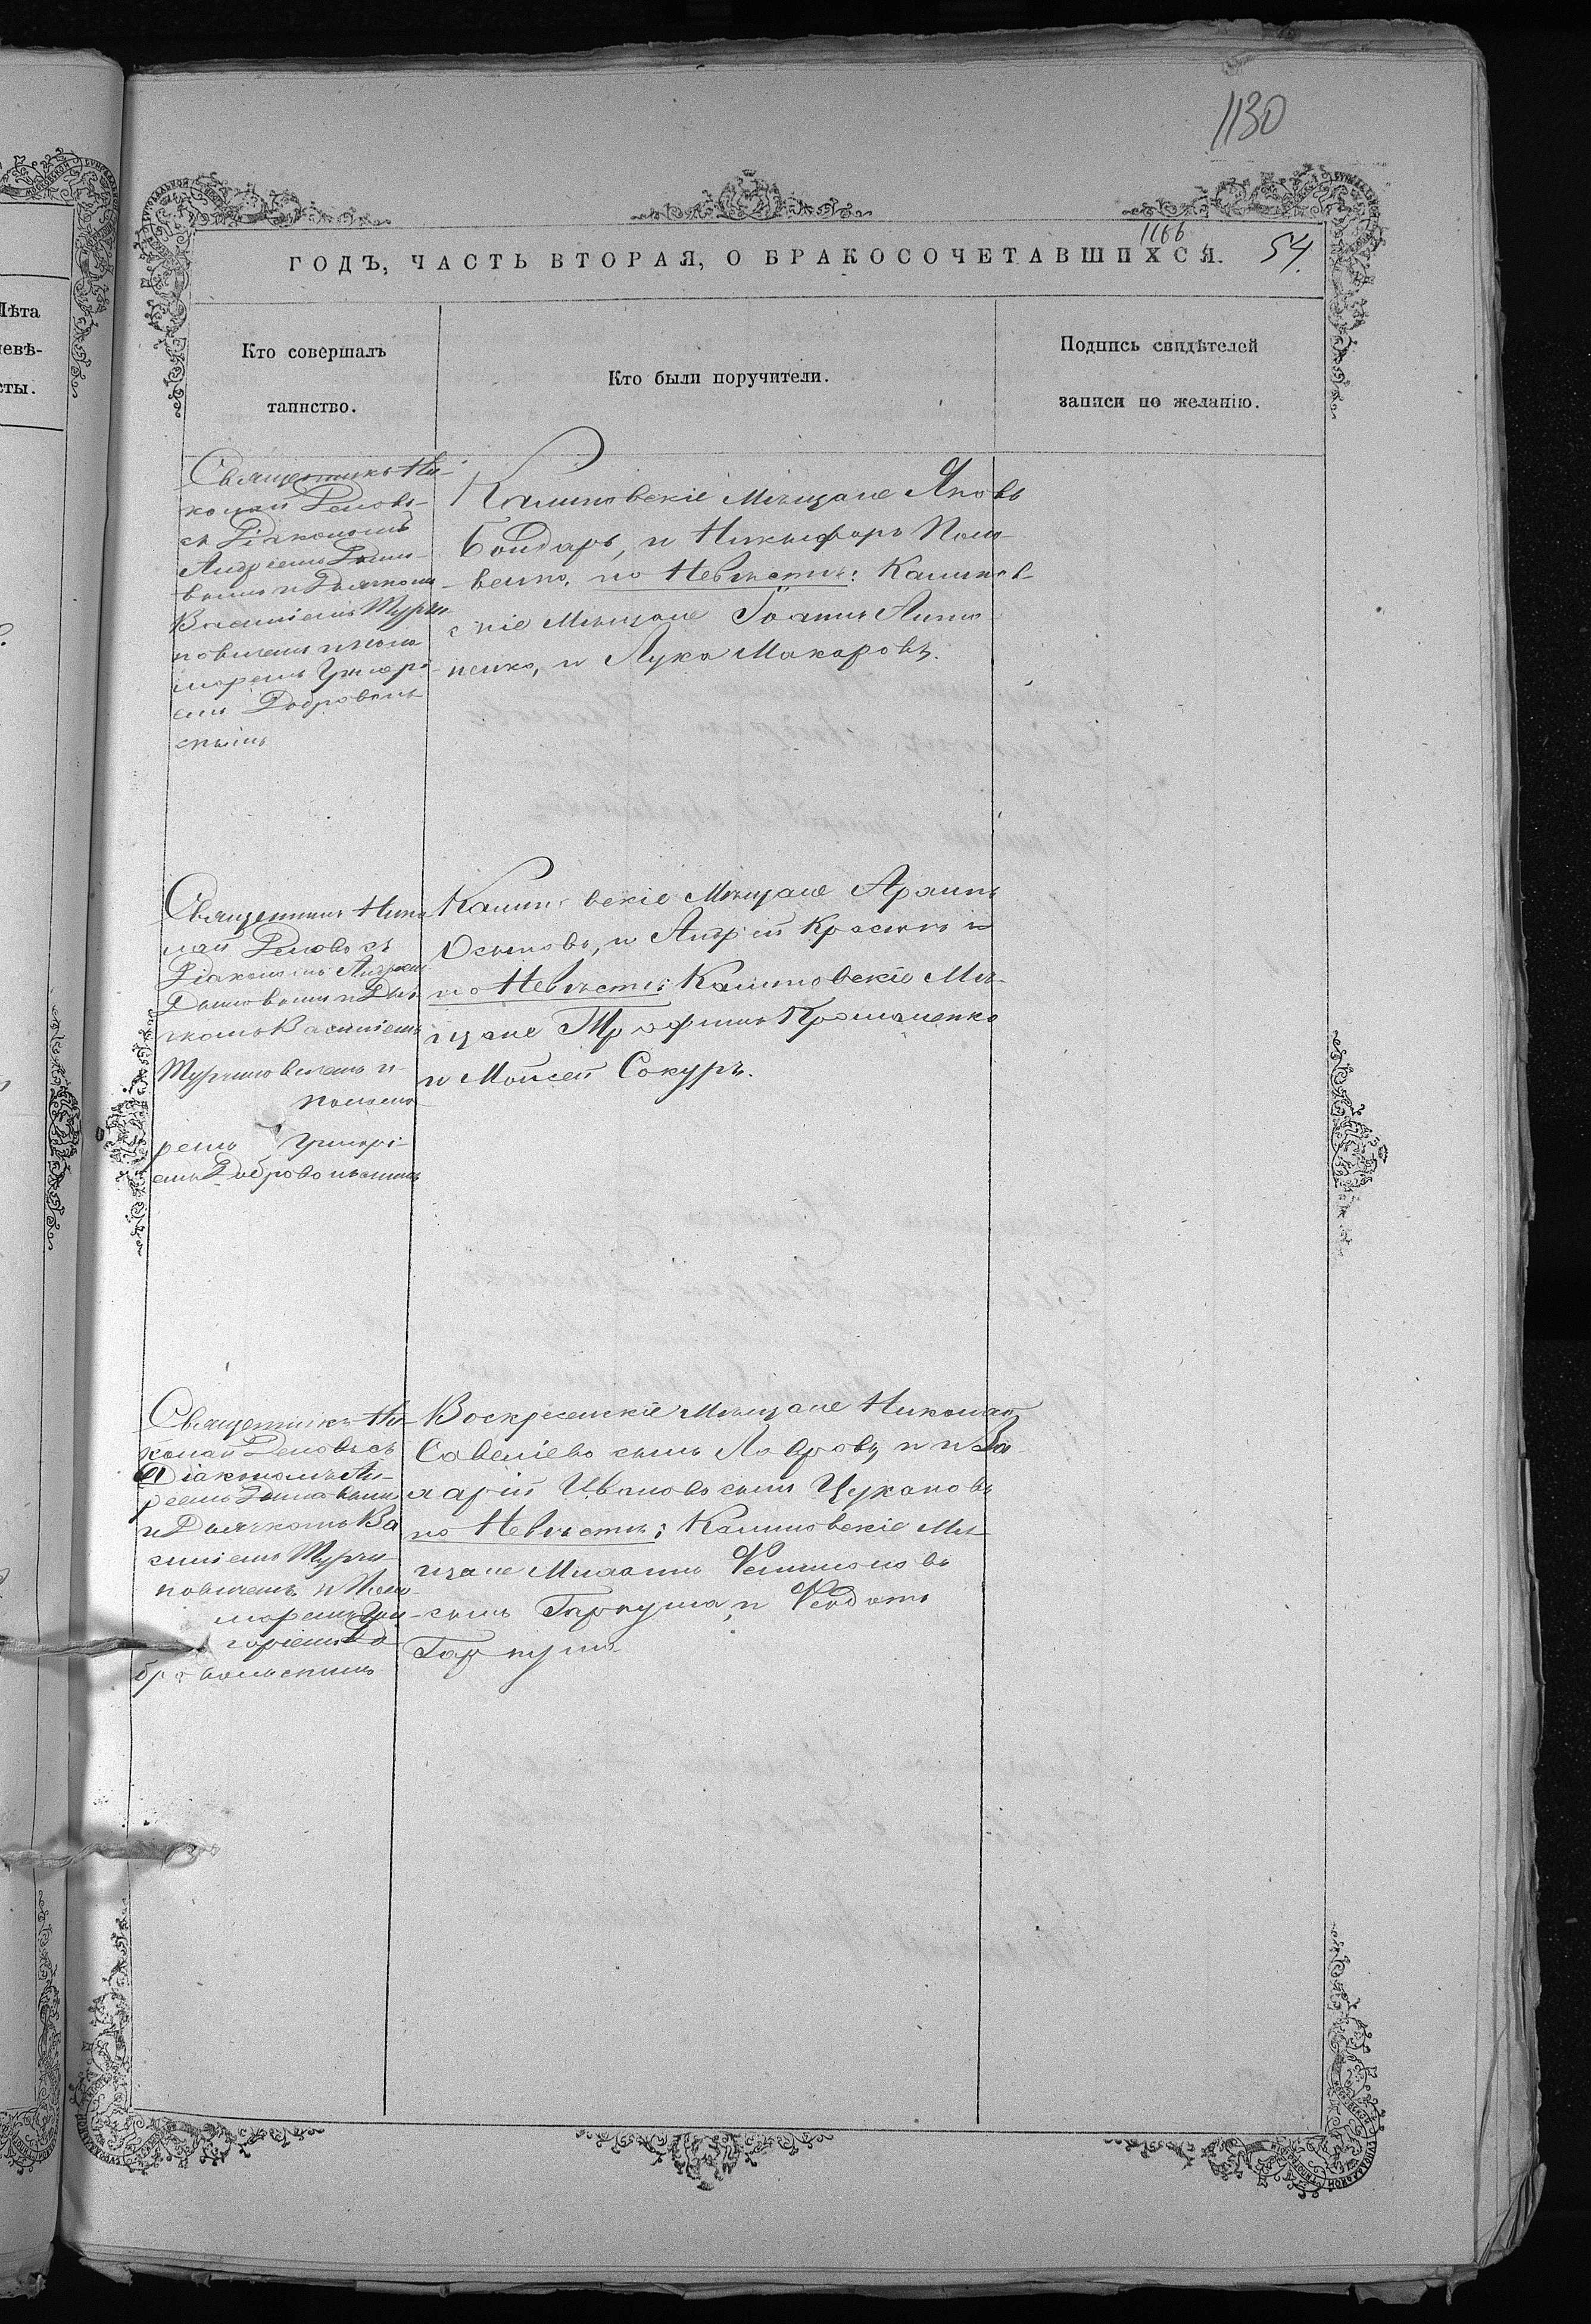 1130
1166
ГОДЪ, ЧАСТЬ ВТОРАЯ, О БРАКОСОЧЕТАВШИХСЯ. 54.
Лѣта
невѣ-
сты.
Кто совершалъ
таинство.
Кто были поручители.
Подпись свидѣтелей
записи по желанію.
Священникъ Ни-
колай
съ Діакономъ
Андреемъ
и Дьячкомъ
Василіемъ Турчи
новичемъ и поно
маремъ Григорі-
емъ Доброволь-
скимъ
Калиновскіе Мѣщане Яковъ
Бондарь, и Никифоръ Поли-
венко, по Невѣстѣ: Калинов-
скіе Мѣщане Іоаннъ
и Лука Макаровъ.
Священникъ Нико
лай съ
Діакономъ Андреем
и Дья
чкомъ Василіемъ
Турчиновичемъ и
понома
ремъ Григорі-
емъ Добровольскимъ
Калиновскіе Мѣщане
Осиповъ, и Андрей
по Невѣстѣ: Калиновскіе Мѣ-
щане Трофимъ
и Моисей Сокуръ.
Священникъ Ни-
колай съ
Діакономъ Ан-
реемъ
и Дьячкомъ Ва
силіемъ Турчи-
новичемъ и Поно-
маремъ Гри-
горіемъ До
бровольскимъ
Воскресенскіе Мѣщане Николай
Савеліевъ сынъ Лавровъ и
Ивановъ сынъ Цукановъ
по Невѣстѣ: Калиновскіе Мѣ-
щане
сынъ Гаркуша, и Ѳеодотъ
Гаркуша